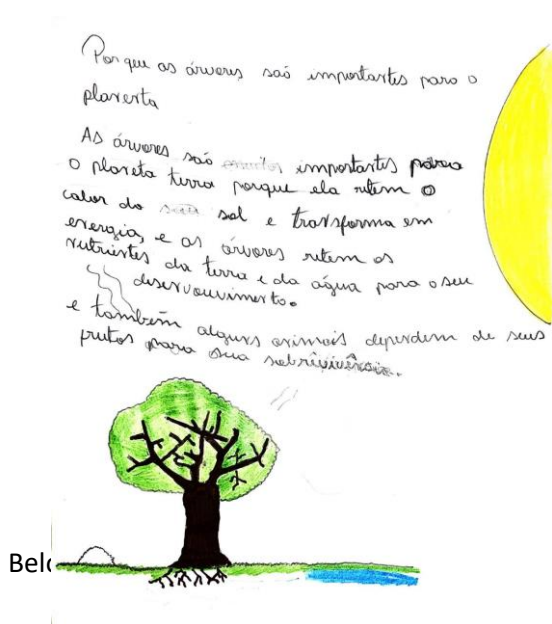 Por que as árvores saõ importantes para o
planenta
As árvores saõ importantes para
o planeta terra porque ela retem o
calor do sol e transforma em
energia, e as árvores retem os
nutrientes da terra e da água para o seu
desenvouvimento.
e também alguns animais dependem de seus
frutos para sua sobrevivência.
Bel